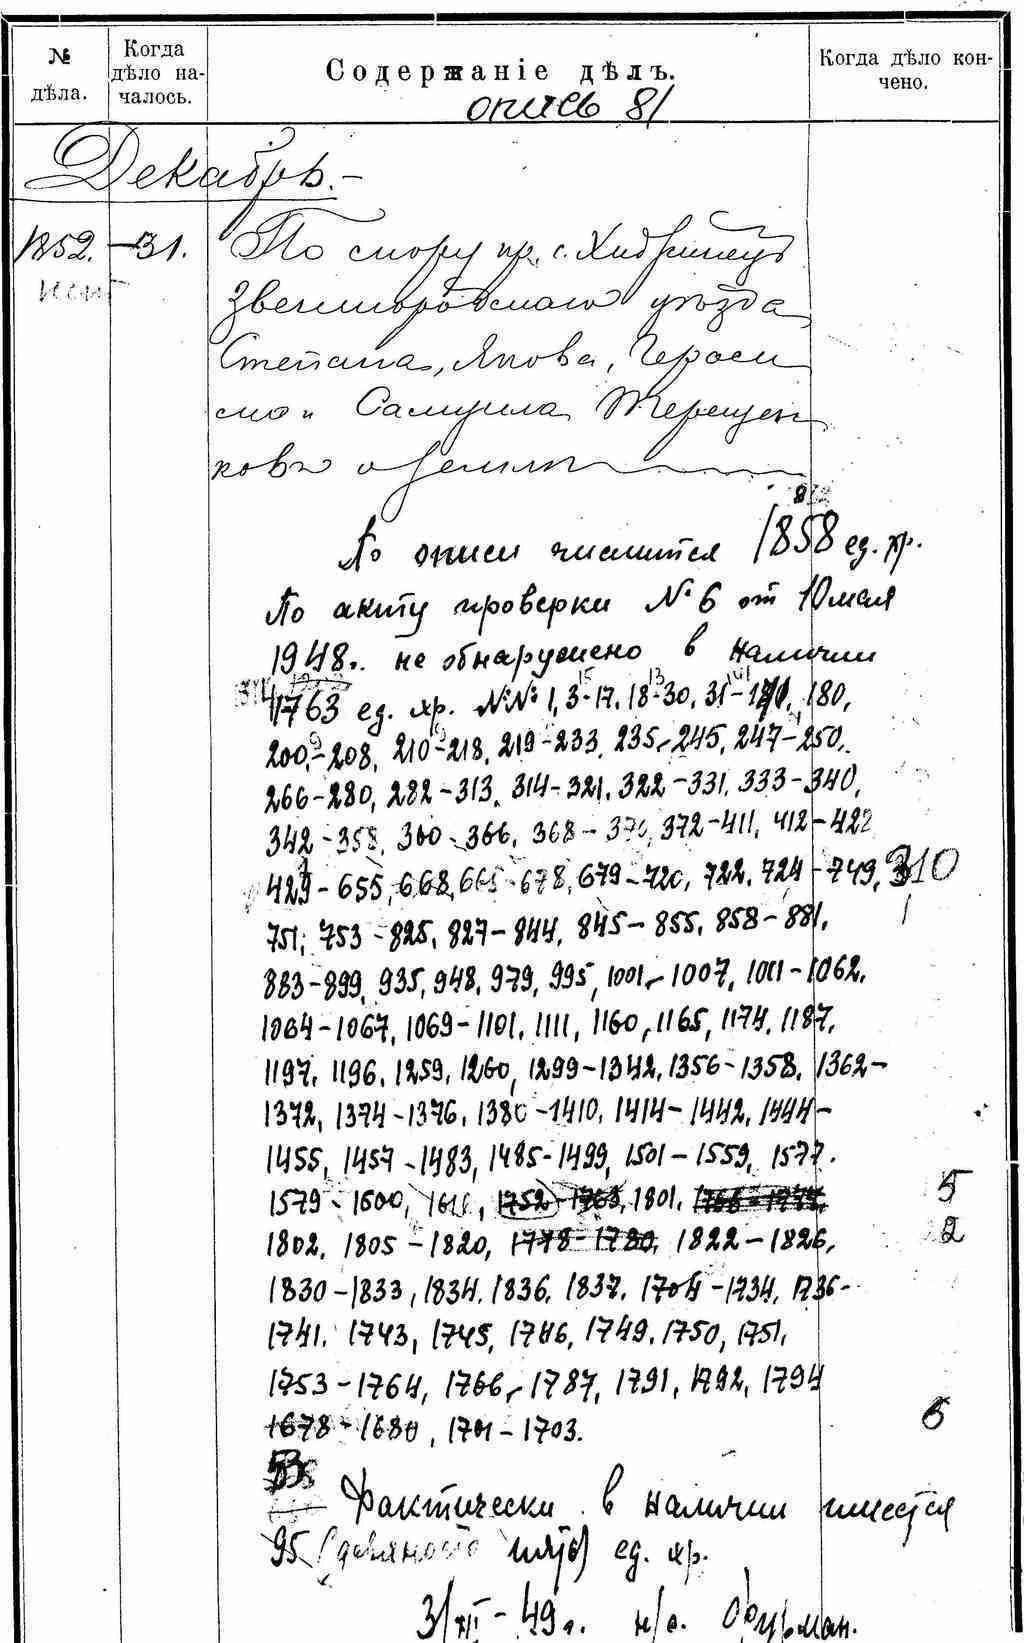 № дѣла.
Когда дѣло на-чалось.
Содержаніе дѣлъ.
Когда дѣло кон-чено.
опись 81
Декабрь.-
1852. -31. По спору кр. с. Хидринецъ
нет
Звенигородскаго уѣзда
Степана, Якова, Гераси
ма и Самуила Терещен
ковъ о землѣ
По описи числится 1858 ед. хр.
По акту проверки № 6 от 10 мая
1948г. не обнаружено в наличии
1763 ед. хр. №№ 1, 3-17, 18-30, 31- 180,
200-208, 210-218, 219-233, 235-245, 247-250,
266-280, 282-313, 314-321, 322-331, 333-340,
342-358, 360-366, 368-370, 372-411, 412-422
429-655, 668, 678, 679-720, 722, 724-749, 310
751, 753-825, 827-844, 845-855, 858-881,
883-899, 935, 948, 979, 995, 1001-1007, 1011-1062,
1064-1067, 1069-1101, 1111, 1160, 1165, 1174, 1187,
1197, 1196, 1259, 1260, 1299-1342, 1356-1358, 1362-
1372, 1374-1376, 1380-1410, 1414-1442, 1444-
1455, 1457-1483, 1485-1499, 1501-1559, 1577.
1579-1600, 1752-1763, 1801, 5
1802, 1805-1820, 1778-1780, 1822-1826, 2
1830-1833, 1834, 1836, 1837, 1704-1734, 1736-
1741, 1743, 1745, 1746, 1749, 1750, 1751,
1753-1764, 1766-1787, 1791, 1792, 1794
1678-1680, 1701-1703. 6
Фактически в наличии имеется
95 (девяносто пять) ед. хр.
3/XII-49г. н/с. Фурман.